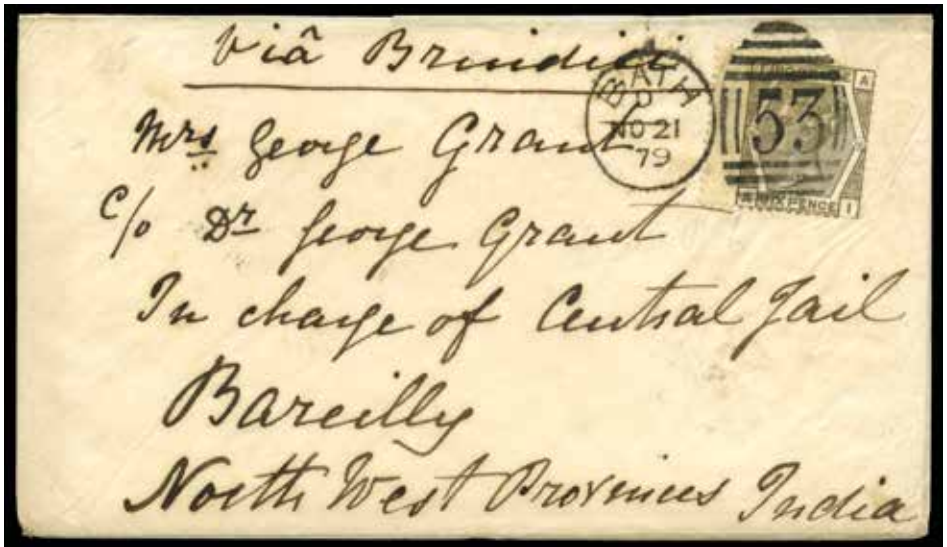 Viâ Brindisi
BATH
D
NO 21
79
53
A
A SIX PENCE I
Mrs George Grant
c/o Dr George Grant
In charge of Central Jail
Bareilly
North West Provinces India